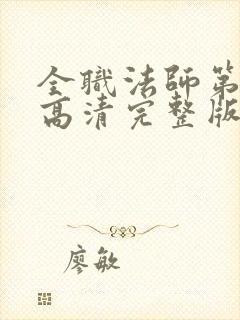 全職法師第
高清完整版
廖敏